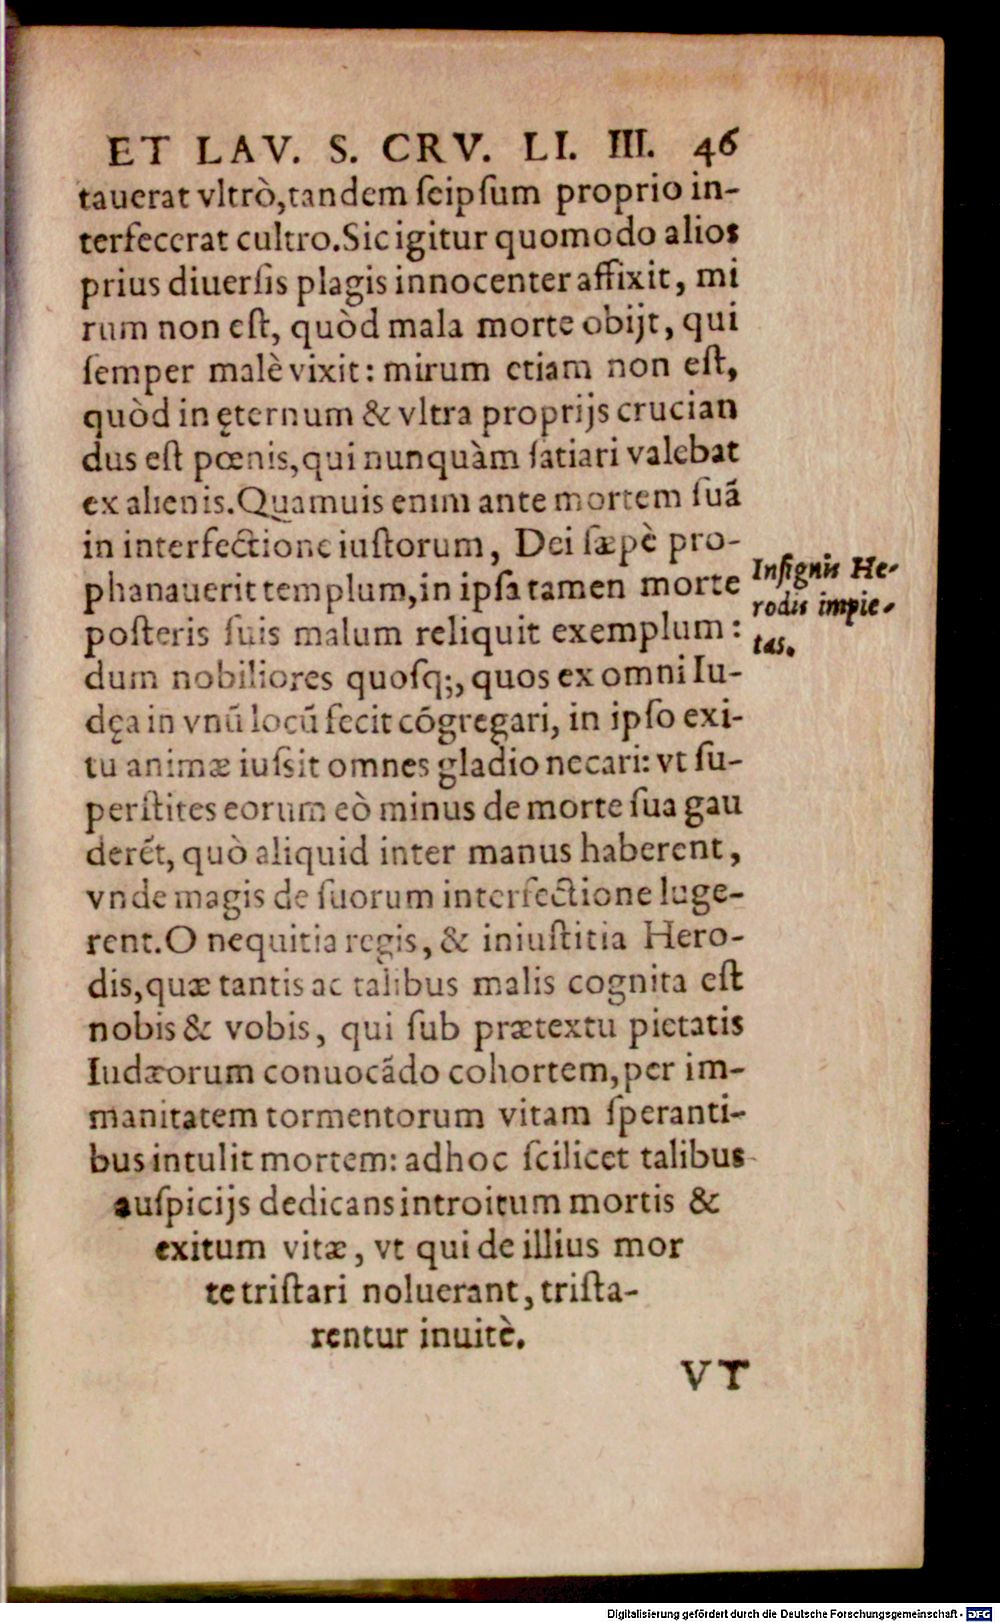 ET LAV. S. CRV. LI. III. 46
tauerat vltrò,tandem ſeipſum proprio in-
terfecerat cultro.Sic igitur quomodo alios
prius diuerſis plagis innocenter affixit, mi
rum non eſt, quòd mala morte obijt, qui
ſemper malè vixit: mirum etiam non eſt,
quòd in ęternum & vltra proprijs crucian
dus eſt pœnis,qui nunquàm ſatiari valebat
ex alienis.Quamuis enim ante mortem ſuã
in interfectione iuſtorum, Dei ſæpè pro-
phanauerit templum,in ipſa tamen morte
poſteris ſuis malum reliquit exemplum:
Inſignis He-
rodis impie-
tas.
dum nobiliores quoſq;, quos ex omni Iu-
dęa in vnũ locũ fecit cõgregari, in ipſo exi-
tu animæ iuſsit omnes gladio necari: vt ſu-
perſtites eorum eò minus de morte ſua gau
derẽt, quò aliquid inter manus haberent,
vnde magis de ſuorum interfectione luge-
rent.O nequitia regis, & iniuſtitia Hero-
dis,quæ tantis ac talibus malis cognita eſt
nobis & vobis, qui ſub prætextu pietatis
Iudæorum conuocãdo cohortem,per im-
manitatem tormentorum vitam ſperanti-
bus intulit mortem: adhoc ſcilicet talibus
auſpicijs dedicans introitum mortis &
exitum vitæ, vt qui de illius mor
te triſtari noluerant, triſta-
rentur inuitè.
VT
Digitalisierung gefördert durch die Deutsche Forschungsgemeinschaft - DFG